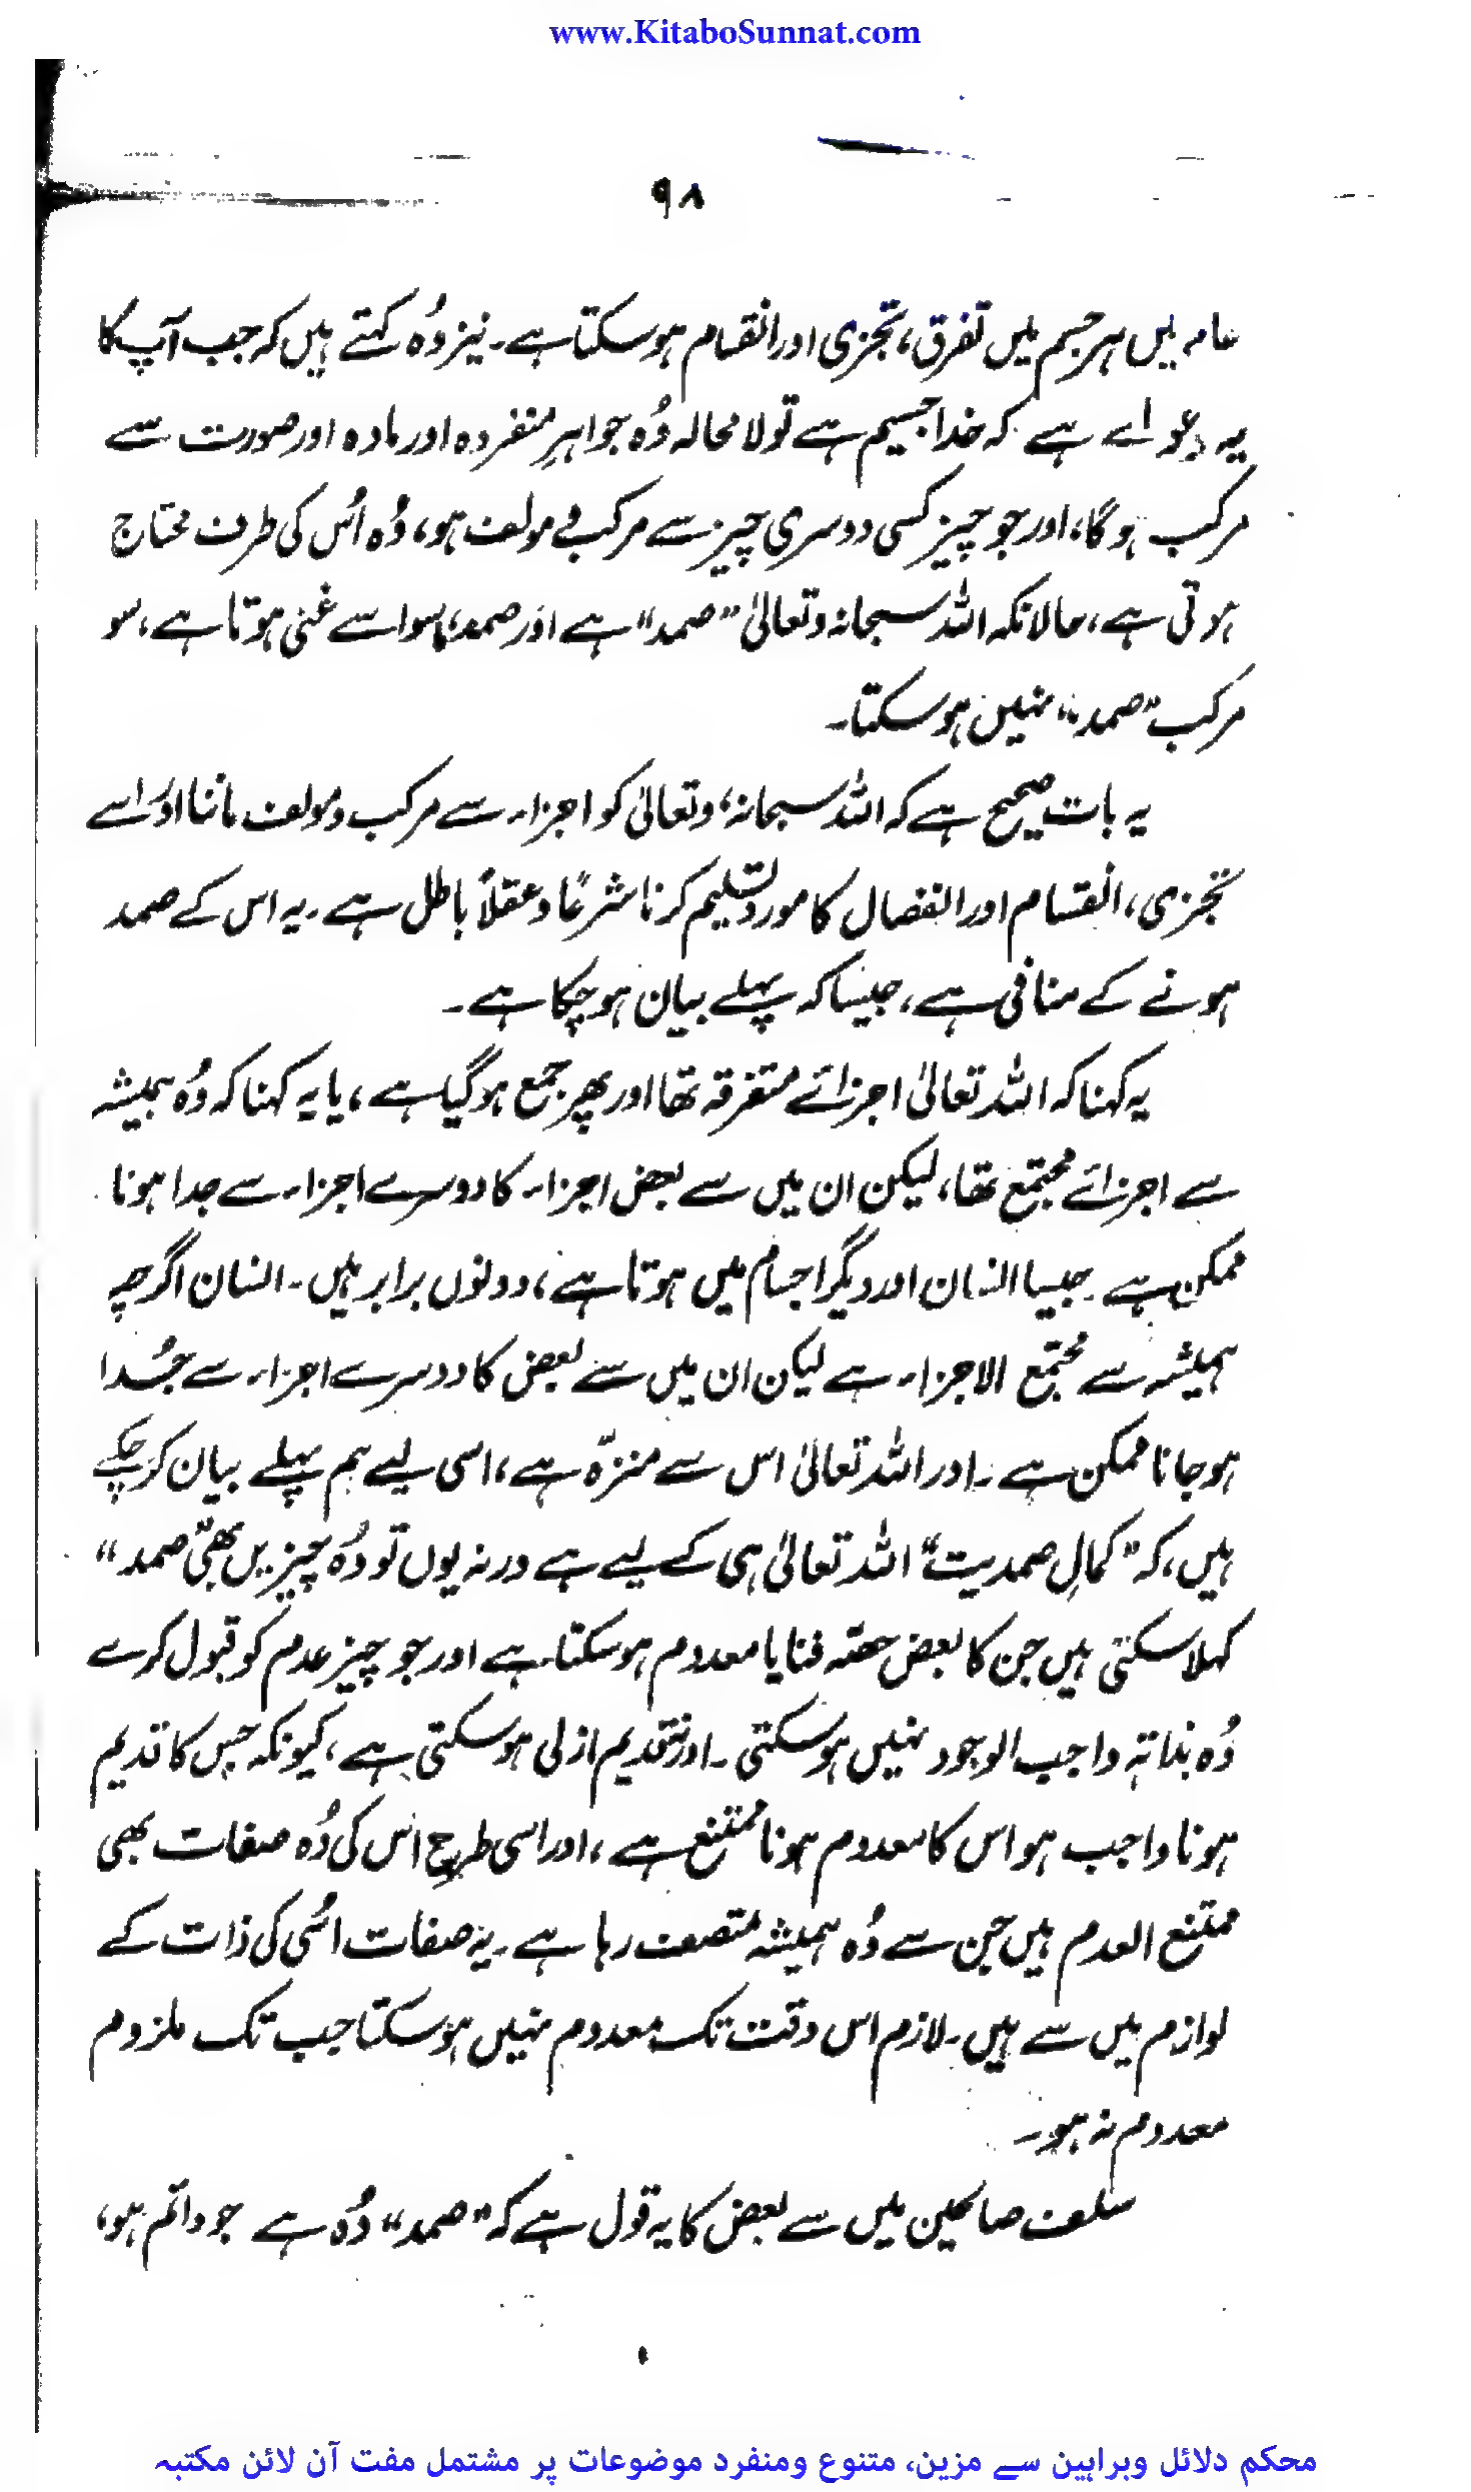 www.KitaboSunnat.com
۹۸
عام ہیں ہر جسم میں تفرق، تجزی اور انقسام ہو سکتا ہے۔ نیز وُہ کہتے ہیں کہ جب آپ کا
یہ دعواے ہے کہ خدا جسیم ہے تو لا محالہ وُہ جواہرِ منفردہ اور مادہ اور صورت سے
مرکب ہوگا، اور جو چیز کسی دوسری چیز سے مرکب و مولف ہو، وُہ اُس کی طرف محتاج
ہوتی ہے، حالانکہ اللہ سبحانہ وتعالیٰ "صمد" ہے اور صمد، ماسوا سے غنی ہوتا ہے، سو
مرکب "صمد" نہیں ہو سکتا۔
یہ بات صحیح ہے کہ اللہ سبحانہ، وتعالیٰ کو اجزاء سے مرکب و مولف ماننا اور اسے
تجزی، انقسام اور انفصال کا مورد تسلیم کرنا شرعًا و عقلاً باطل ہے۔ یہ اس کے صمد
ہونے کے منافی ہے، جیسا کہ پہلے بیان ہو چکا ہے۔
یہ کہنا کہ اللہ تعالیٰ اجزائے متفرقہ تھا اور پھر جمع ہو گیا ہے، یا یہ کہنا کہ وُہ ہمیشہ
سے اجزائے مجتمع تھا، لیکن ان میں سے بعض اجزاء کا دوسرے اجزاء سے جدا ہونا
ممکن ہے جیسا انسان اور دیگر اجسام میں ہوتا ہے، دونوں برابر ہیں۔ انسان اگرچہ
ہمیشہ سے مجتمع الاجزاء ہے لیکن ان میں سے بعض کا دوسرے اجزاء سے جُدا
ہو جانا ممکن ہے۔ اور اللہ تعالیٰ اس سے منزّہ ہے، اسی لیے ہم پہلے بیان کر چکے
ہیں، کہ "کمالِ صمدیت" اللہ تعالیٰ ہی کے لیے ہے ورنہ یوں تو وُہ چیزیں بھی "صمد"
کہلا سکتی ہیں جن کا بعض حصہ فنا یا معدوم ہو سکتا ہے اور جو چیز عدم کو قبول کرے
وُہ بذاتہٖ واجب الوجود نہیں ہو سکتی۔ اور نہ قدیم ازلی ہو سکتی ہے، کیونکہ جس کا قدیم
ہونا واجب ہو اس کا معدوم ہونا ممتنع ہے، اور اسی طرح اس کی وُہ صفات بھی
ممتنع العدم ہیں جن سے وُہ ہمیشہ متصف رہا ہے۔ یہ صفات اُسی کی ذات کے
لوازم میں سے ہیں۔ لازم اس وقت تک معدوم نہیں ہو سکتا جب تک ملزوم
معدوم نہ ہو۔
سلف صالحین میں سے بعض کا یہ قول ہے کہ "صمد" وُہ ہے جو دائم ہو،
محکم دلائل وبراہین سے مزین، متنوع ومنفرد موضوعات پر مشتمل مفت آن لائن مکتبہ